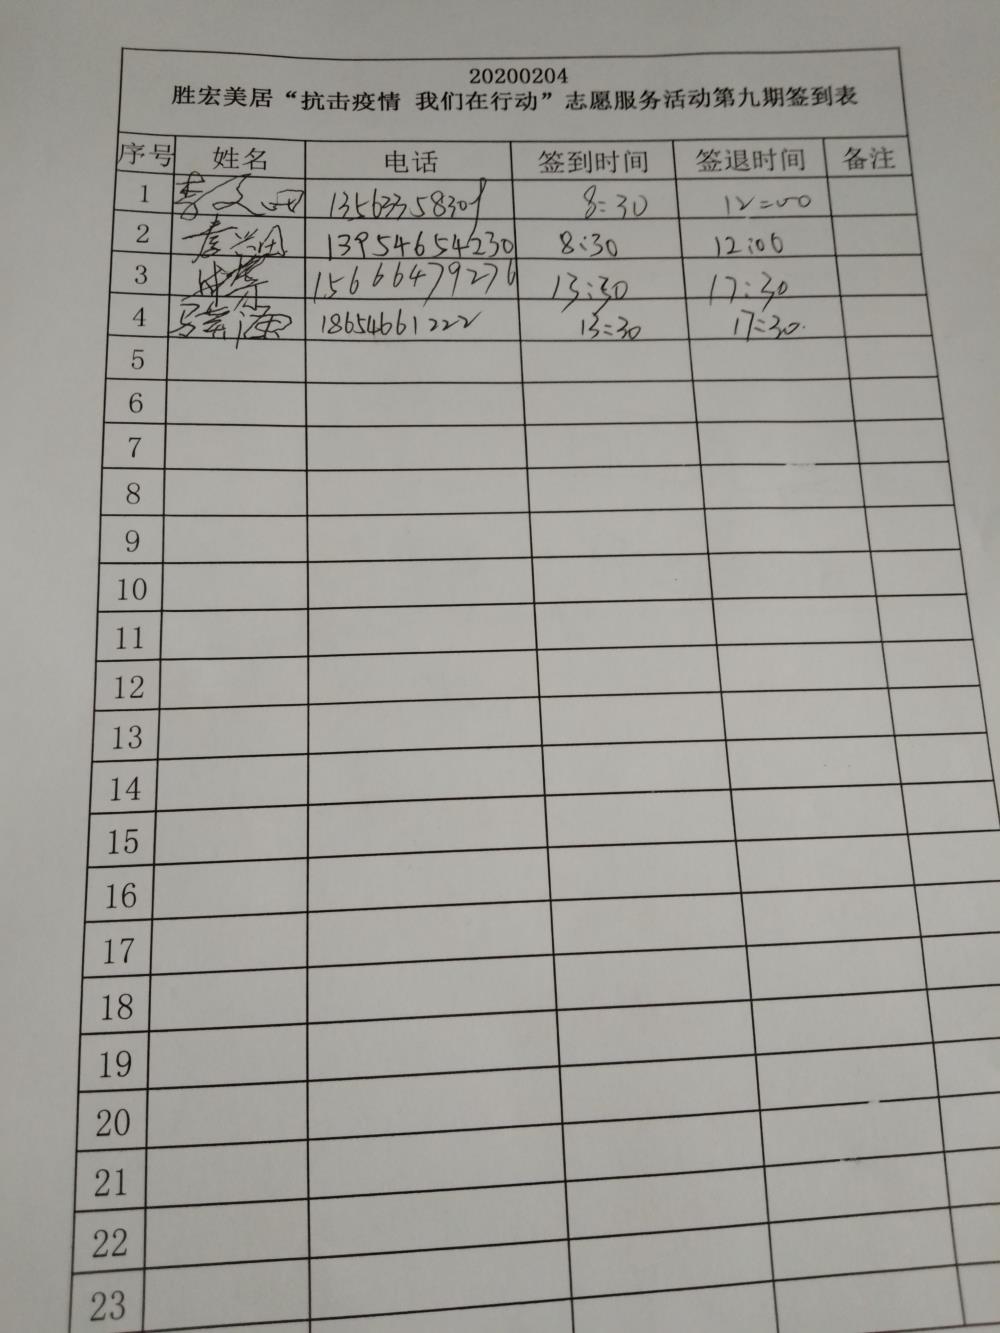 20200204
胜宏美居“抗击疫情 我们在行动”志愿服务活动第九期签到表
序号 姓名 电话 签到时间 签退时间 备注
1 13563358309 8:30 12:00
2 13954654230 8:30 12:00
3 15666479276 13:30 17:30
4 18654661222 13:30 17:30
5
6
7
8
9
10
11
12
13
14
15
16
17
18
19
20
21
22
23